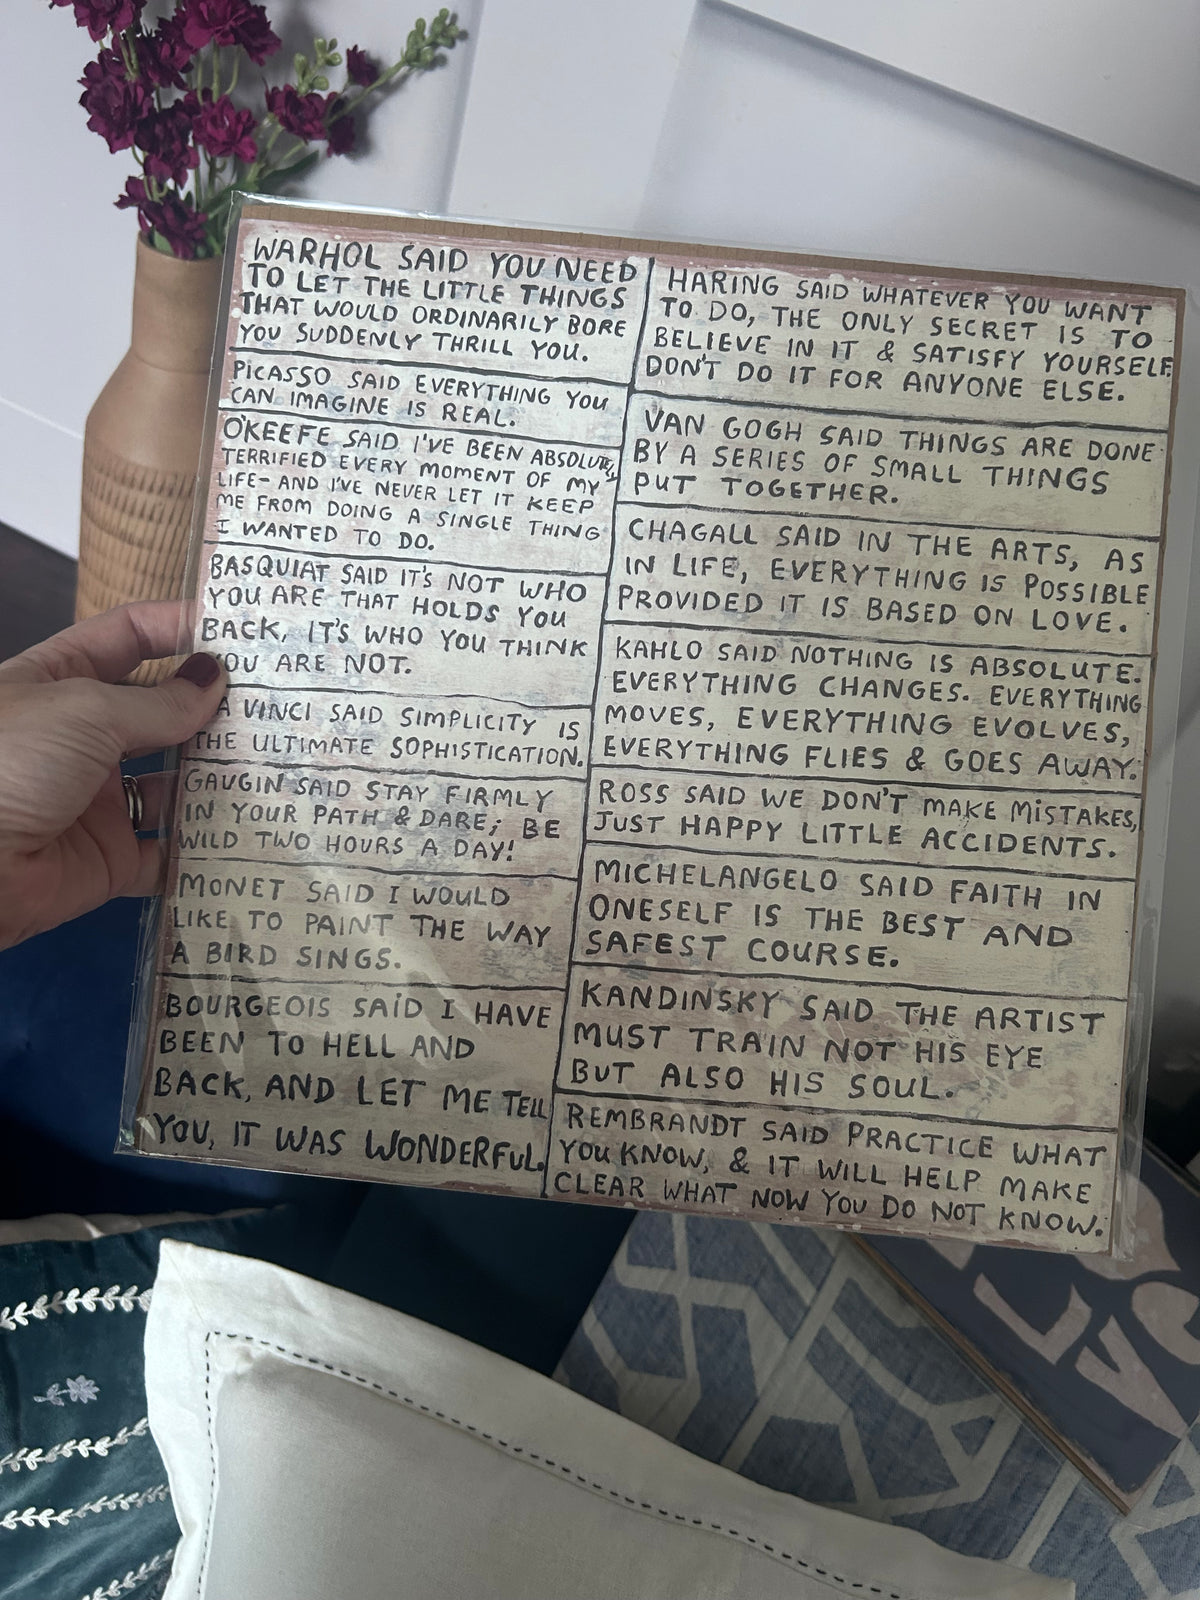 WARHOL SAID YOU NEED
TO LET THE LITTLE THINGS
THAT WOULD ORDINARILY BORE
YOU SUDDENLY THRILL YOU.
PICASSO SAID EVERYTHING YOU
CAN IMAGINE IS REAL.
O'KEEFE SAID I'VE BEEN ABSOLUTELY
TERRIFIED EVERY MOMENT OF MY
LIFE- AND I'VE NEVER LET IT KEEP
ME FROM DOING A SINGLE THING
I WANTED TO DO.
BASQUIAT SAID IT'S NOT WHO
YOU ARE THAT HOLDS YOU
BACK, IT'S WHO YOU THINK
YOU ARE NOT.
DA VINCI SAID SIMPLICITY IS
THE ULTIMATE SOPHISTICATION.
GAUGIN SAID STAY FIRMLY
IN YOUR PATH & DARE; BE
WILD TWO HOURS A DAY!
MONET SAID I WOULD
LIKE TO PAINT THE WAY
A BIRD SINGS.
BOURGEOIS SAID I HAVE
BEEN TO HELL AND
BACK, AND LET ME TELL
YOU, IT WAS WONDERFUL.
HARING SAID WHATEVER YOU WANT
TO DO, THE ONLY SECRET IS TO
BELIEVE IN IT & SATISFY YOURSELF.
DON'T DO IT FOR ANYONE ELSE.
VAN GOGH SAID THINGS ARE DONE
BY A SERIES OF SMALL THINGS
PUT TOGETHER.
CHAGALL SAID IN THE ARTS, AS
IN LIFE, EVERYTHING IS POSSIBLE
PROVIDED IT IS BASED ON LOVE.
KAHLO SAID NOTHING IS ABSOLUTE.
EVERYTHING CHANGES. EVERYTHING
MOVES, EVERYTHING EVOLVES,
EVERYTHING FLIES & GOES AWAY.
ROSS SAID WE DON'T MAKE MISTAKES,
JUST HAPPY LITTLE ACCIDENTS.
MICHELANGELO SAID FAITH IN
ONESELF IS THE BEST AND
SAFEST COURSE.
KANDINSKY SAID THE ARTIST
MUST TRAIN NOT HIS EYE
BUT ALSO HIS SOUL.
REMBRANDT SAID PRACTICE WHAT
YOU KNOW, & IT WILL HELP MAKE
CLEAR WHAT NOW YOU DO NOT KNOW.